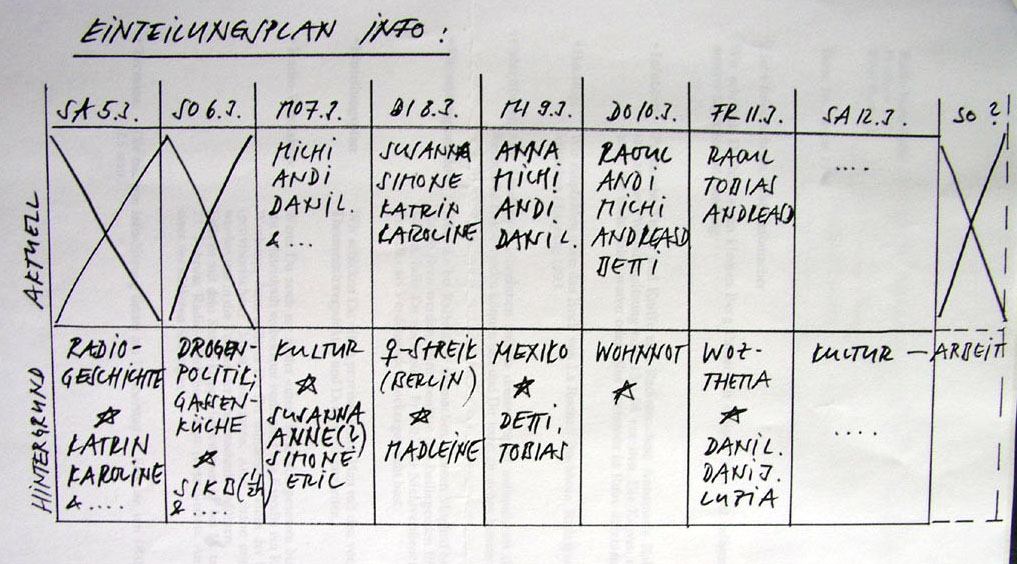 EINTEILUNGSPLAN INFO:
SA 5.3. SO 6.3. MO 7.3. DI 8.3. MI 9.3. DO 10.3. FR 11.3. SA 12.3. SO ?
AKTUELL
MICHI
ANDI
DANIL.
& ...
SUSANNA
SIMONE
KATRIN
KAROLINE
ANNA
MICHI
ANDI
DANIL.
RAOUL
ANDI
MICHI
ANDREASD
BETTI
RAOUL
TOBIAS
ANDREASD
....
HINTERGRUND
RADIO-
GESCHICHTE
KATRIN
KAROLINE
& ....
DROGEN-
POLITIK;
GASSEN-
KÜCHE
& ....
KULTUR
SUSANNA
ANNE(?)
SIMONE
ERIC
♀-STREIK
(BERLIN)
MADLEINE
MEXIKO
TOBIAS
WOHNNOT
WOZ-
THEMA
DANIL.
DANIJ.
LUZIA
KULTUR — ARBEIT
....